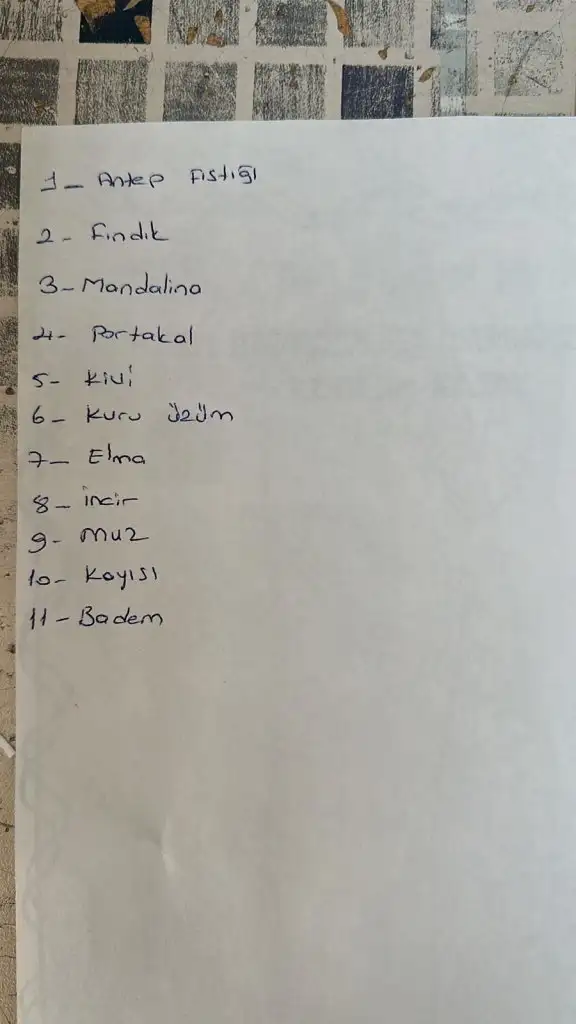 1- Antep Fıstığı
2- Fındık
3- Mandalina
4- Portakal
5- Kivi
6- Kuru üzüm
7- Elma
8- incir
9- Muz
10- Kayısı
11- Badem